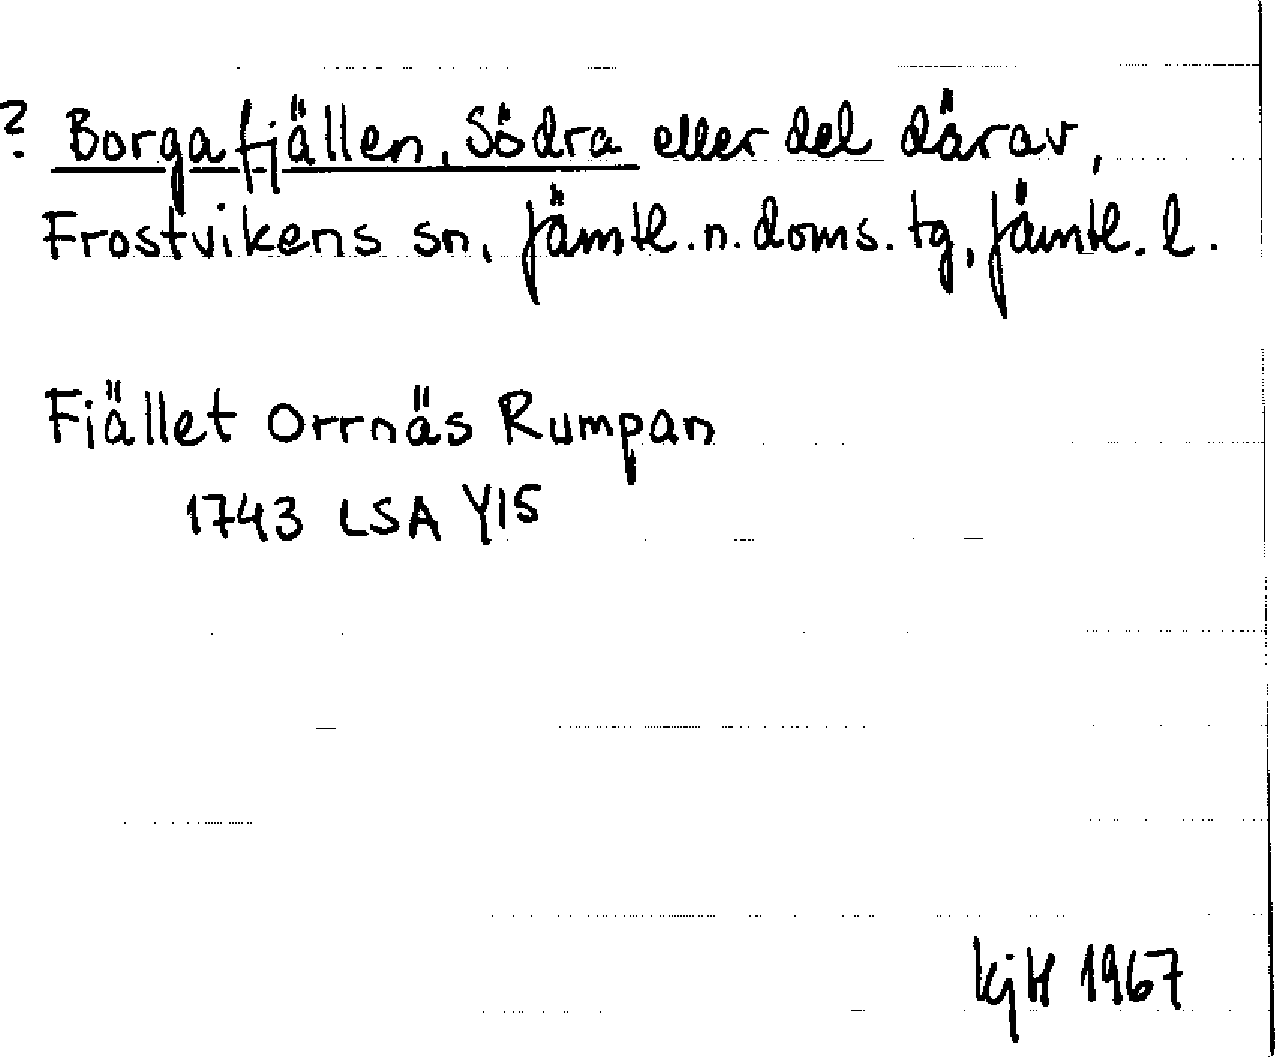 ? Borgafjällen, Södra eller del därav,
Frostvikens sn, Jämtl. n. doms. tg, Jämtl. l.
Fiället Orrnäs Rumpan
1743 LSA Y15
KjH 1967